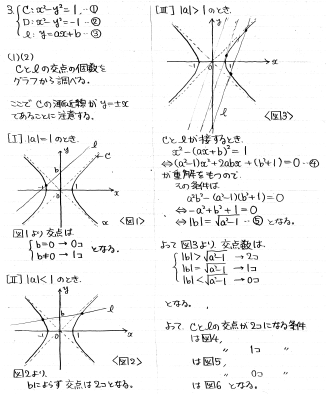 3. { C: x²-y²=1 …①
D: x²-y²=-1 …②
l: y=ax+b …③
(1)(2)
Cとlの交点の個数を
グラフから調べる。
ここで Cの漸近線が y=±x
であることに注意する。
[Ⅰ] |a|=1 のとき.
y
l
C
-1
0
1
x
<図1>
図1より交点は
{ b=0 → 0コ
b≠0 → 1コ となる。
[Ⅱ] |a|<1 のとき.
y
l
b
-1
0
1
x
<図2>
図2より.
bによらず交点は2コとなる。
[Ⅲ] |a|>1 のとき.
y
-1
0
1
x
l
<図3>
Cとlが接するとき.
x²-(ax+b)²=1
⇔(a²-1)x²+2abx+(b²+1)=0 …④
が重解をもつので
その条件は
a²b²-(a²-1)(b²+1)=0
⇔-a²+b²+1=0
⇔|b|=√a²-1 …⑤ となる。
よって図3より、交点数は.
{ |b|>√a²-1 → 2コ
|b|=√a²-1 → 1コ
|b|<√a²-1 → 0コ
となる。
よって Cとlの交点が2コになる条件
は図4,
〃 1コ 〃
は図5,
〃 0コ 〃
は図6 となる。